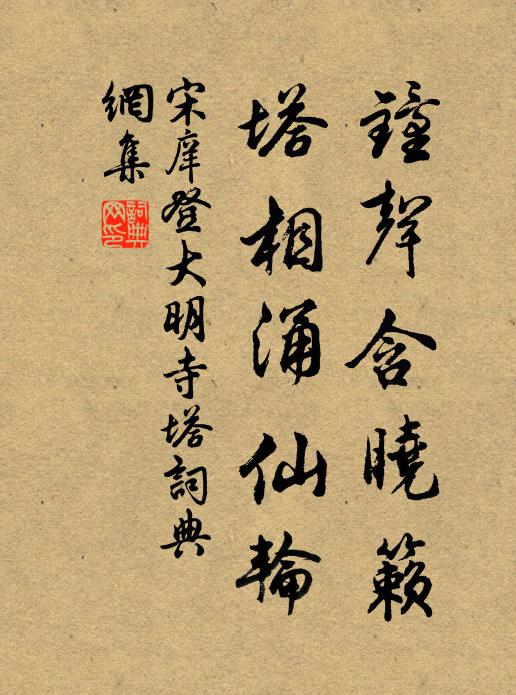 鐘聲含曉籟
塔相涌仙輪
宋庠登大明寺塔詞典
網集
詞典
網印